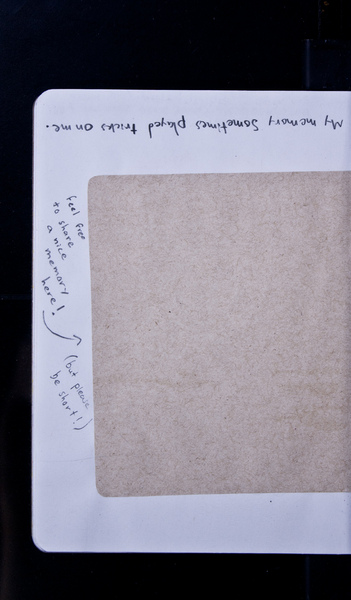 My memory sometimes played tricks on me.
feel free
to share
a nice
memory
here!
(but please
be short!)